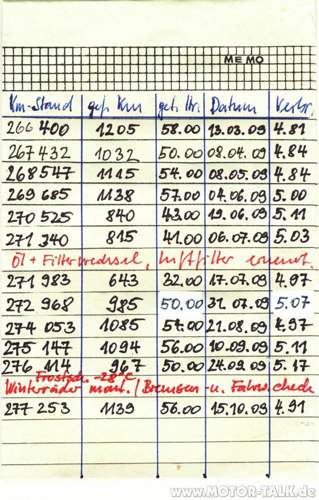 MEMO
Km-Stand gef. Km get. ltr. Datum Verbr.
266 400 1205 58.00 13.03.09 4.81
267 432 1032 50.00 08.04.09 4.84
268 547 1115 54.00 08.05.09 4.84
269 685 1138 57.00 04.06.09 5.00
270 525 840 43.00 19.06.09 5.11
271 340 815 41.00 06.07.09 5.03
Öl + Filterwechsel, Luftfilter erneut.
271 983 643 32.00 17.07.09 4.97
272 968 985 50.00 31.07.09 5.07
274 053 1085 54.00 21.08.09 4.97
275 147 1094 56.00 10.09.09 5.11
276 114 967 50.00 24.09.09 5.17
Frostsch. -28°C
Winterräder mont. / Bremsen - u. Fahrw. check
277 253 1139 56.00 15.10.09 4.91
www.MOTOR-TALK.de